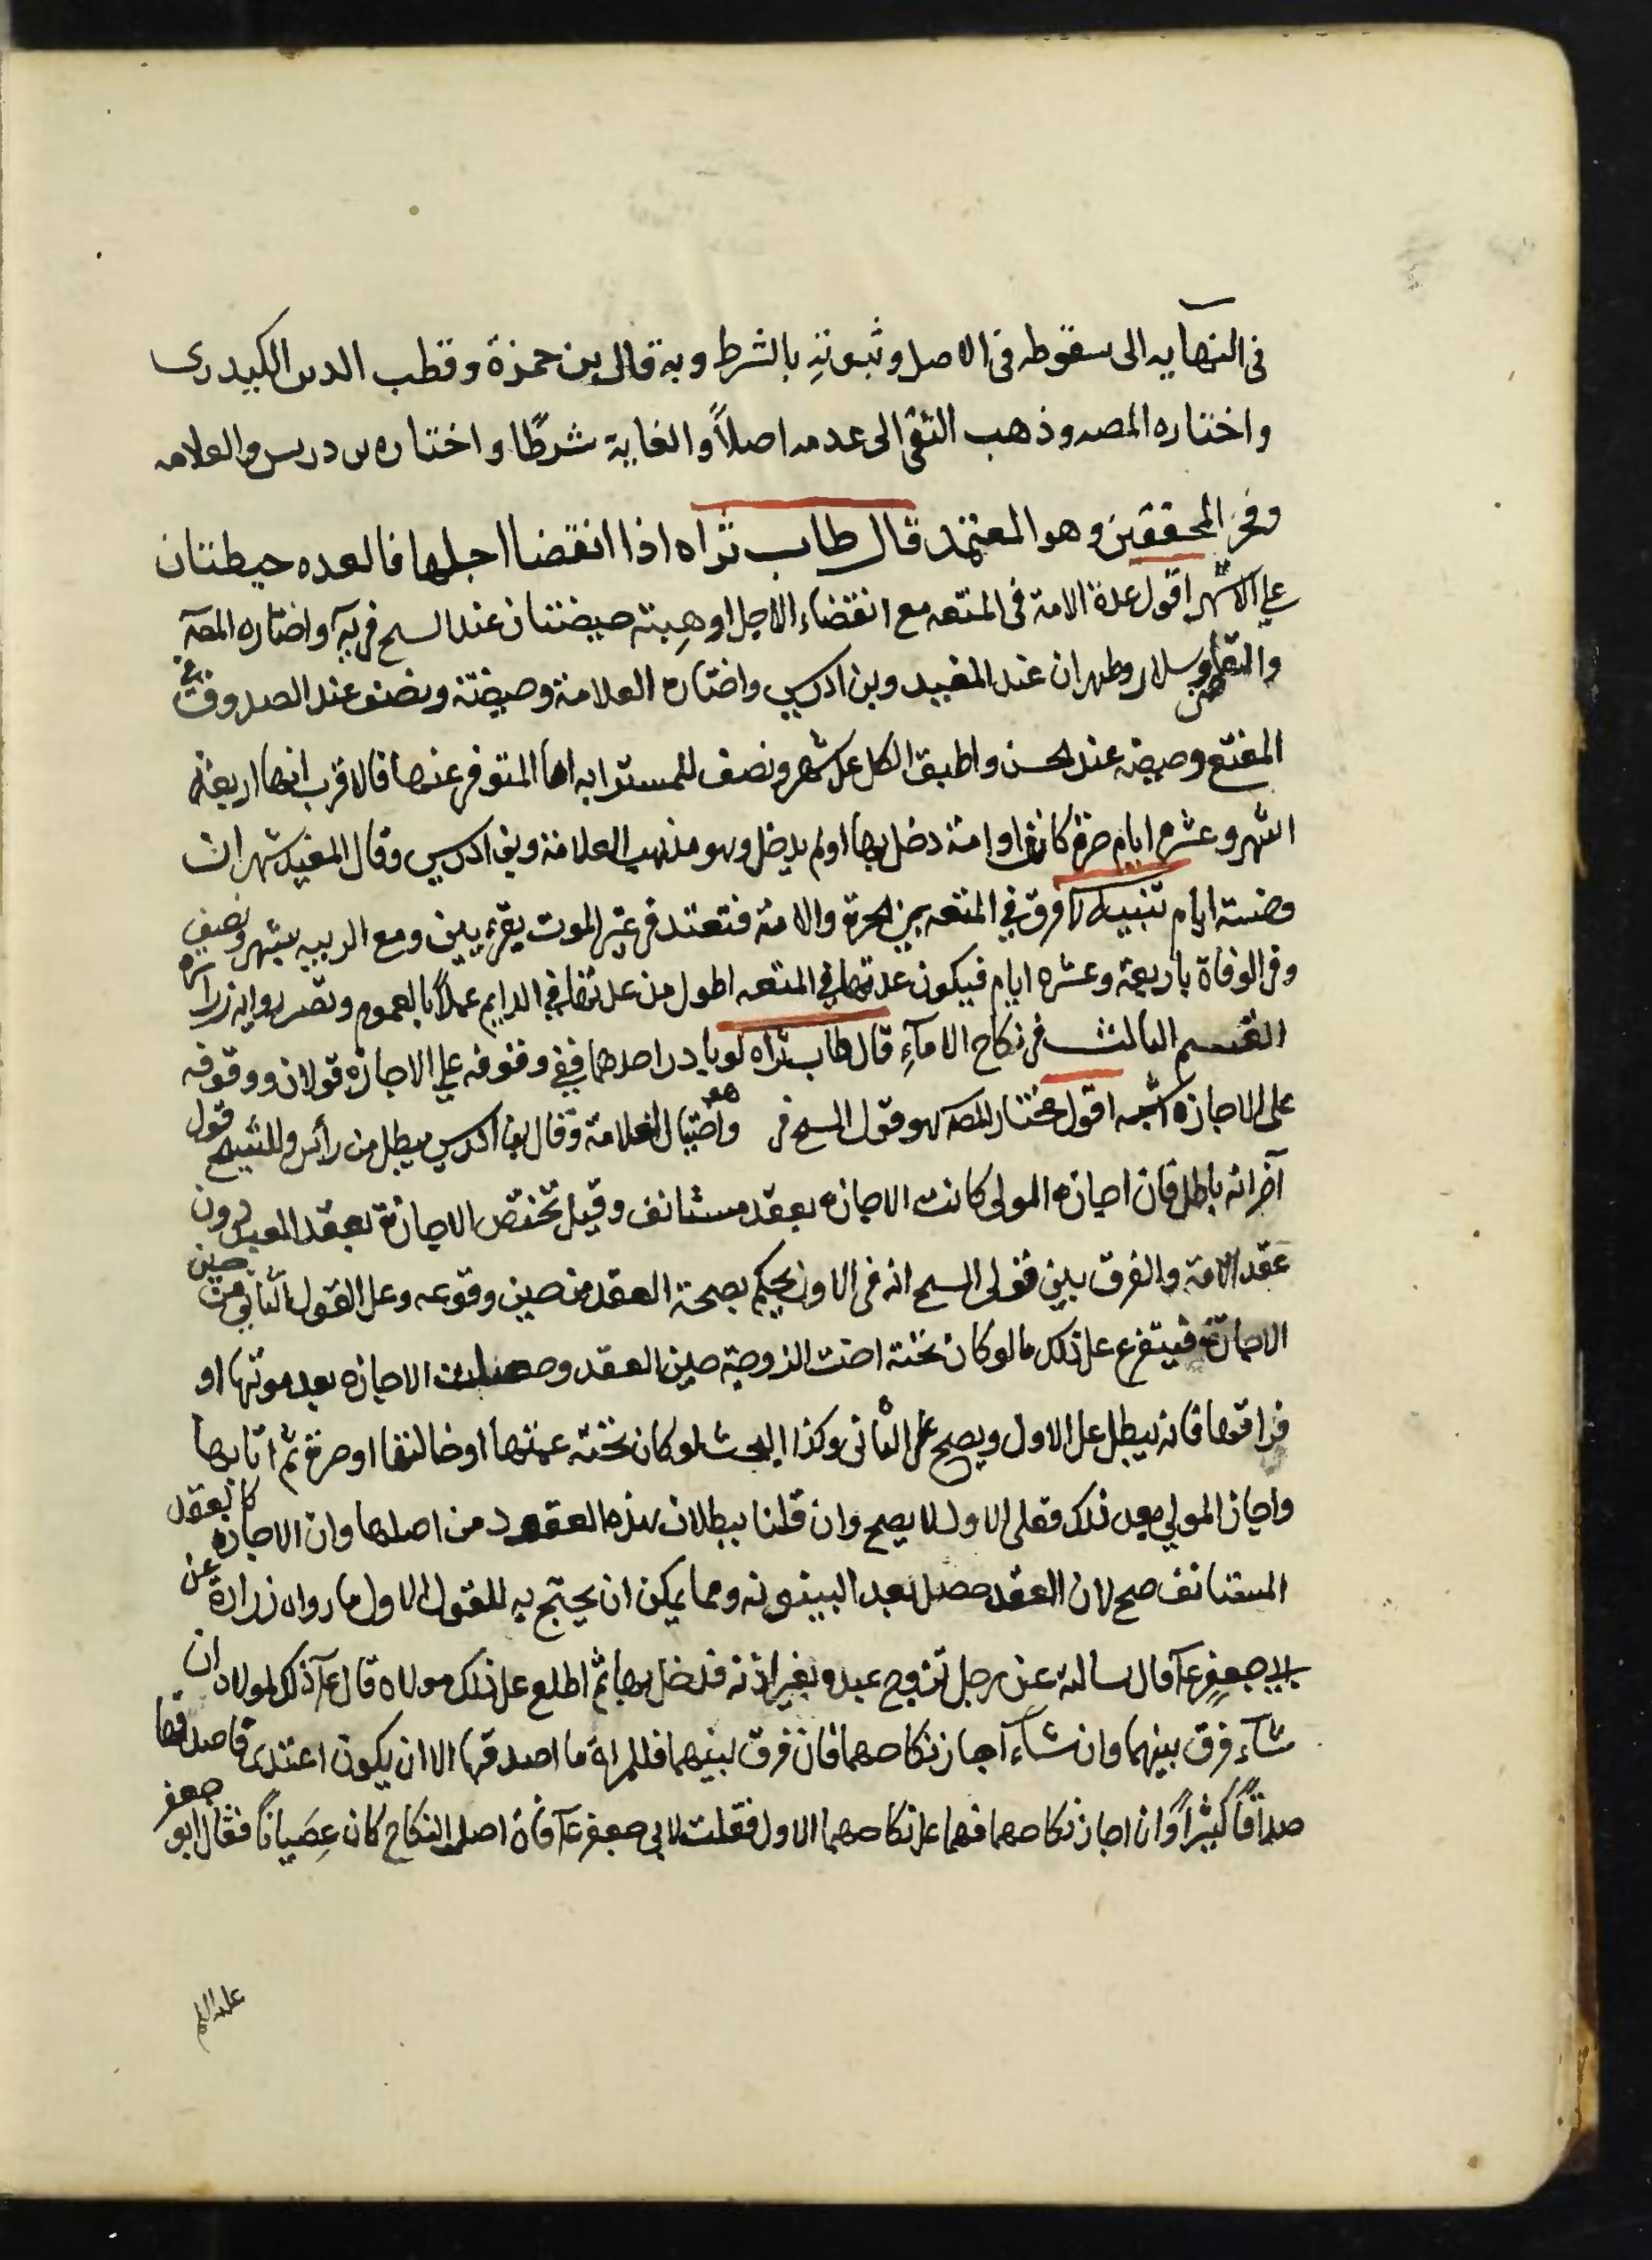 في النهايه الى سقوطه في الاصل وثبوته بالشرط وبه قال بن حمزة وقطب الدين الكيدرى
واختاره المصه وذهب التقى الى عدمه اصلاً والغاية شرطًا واختاره بن دريس والعلامه
وفخر المحققين وهو المعتمد قال طاب ثراه اذا انقضا اجلها فالعده حيطتان
على الاشهر اقول عدة الامة في المتعه مع انقضاء الاجل او هبته حيضتان عند الشيخ في يه واختاره المصه
والتقى وسلار وطهران عند المفيد وبن ادريس واختاره العلامة وحيضته ونصف عند الصدوق في
المقنع وحيضه عند الحسن واطبق الكل على شهر ونصف للمسترابه اما المتوفى عنها فالاقرب انها اربعة
اشهر وعشرة ايام حرة كانت او امة دخل بها او لم يدخل وهو مذهب العلامة وبن ادريس وقال المفيد شهران
وخمسة ايام تنبيه لا فرق في المتعه بين الحرة والامة فتعتد في غير الموت بقرءيين ومع الريبه بشهر ونصف
وفي الوفاة باربعة وعشره ايام فيكون عدتها في المتعه اطول من عدتها في الدايم عملاً بالعموم ونص رواية زراره
القسم الثالث في نكاح الامآءِ قال طاب ثراه لو بادر احدهما ففي وقوفه على الاجازه قولان ووقوفه
على الاجازه اشبه اقول مختار المصه هو قول الشيخ في واختيار العلامة وقال بن ادريس يبطل من رأس وللشيخ قول
آخر انه باطل فان اجازه المولى كانت الاجازه بعقد مستانف وقيل تختص الاجازة بعقد العبد دون
عقد الامة والفرق بين قولى الشيخ انه في الاول يحكم بصحة العقد من حين وقوعه وعلى القول الثاني من حين
الاجازة فيتفرع على ذلك ما لو كان تحته اخت الزوجة حين العقد وحصلت الاجازه بعد موتها او
فراقها فانه يبطل على الاول ويصح على الثاني وكذا البحث لو كان تحته عمتها او خالتها او حرة ثم اتابها
واجاز المولى بعد ذلك فعلى الاول لا يصح وان قلنا ببطلان هذه العقود من اصلها وان الاجازه كالعقد
المستانف صح لان العقد حصل بعد البينونه ومما يمكن ان يحتج به للقول الاول ما رواه زرارة عن
ابى جعفرٍ عآ قال سالته عن رجل تزوج عبده بغير اذنه فدخل بها ثم اطلع على ذلك مولاه قال عآ ذلك لمولاه ان
شآء فرق بينهما وان شآء اجاز نكاحهما فان فرق بينهما فللمراة ما اصدقها الا ان يكون اعتدى فاصدقها
صداقًا كثيراً وان اجاز نكاحهما فهما على نكاحهما الاول فقلت لابي جعفر عآ فان اصل النكاح كان عِصَيانًا فقال ابو جعفر
عليه السلم